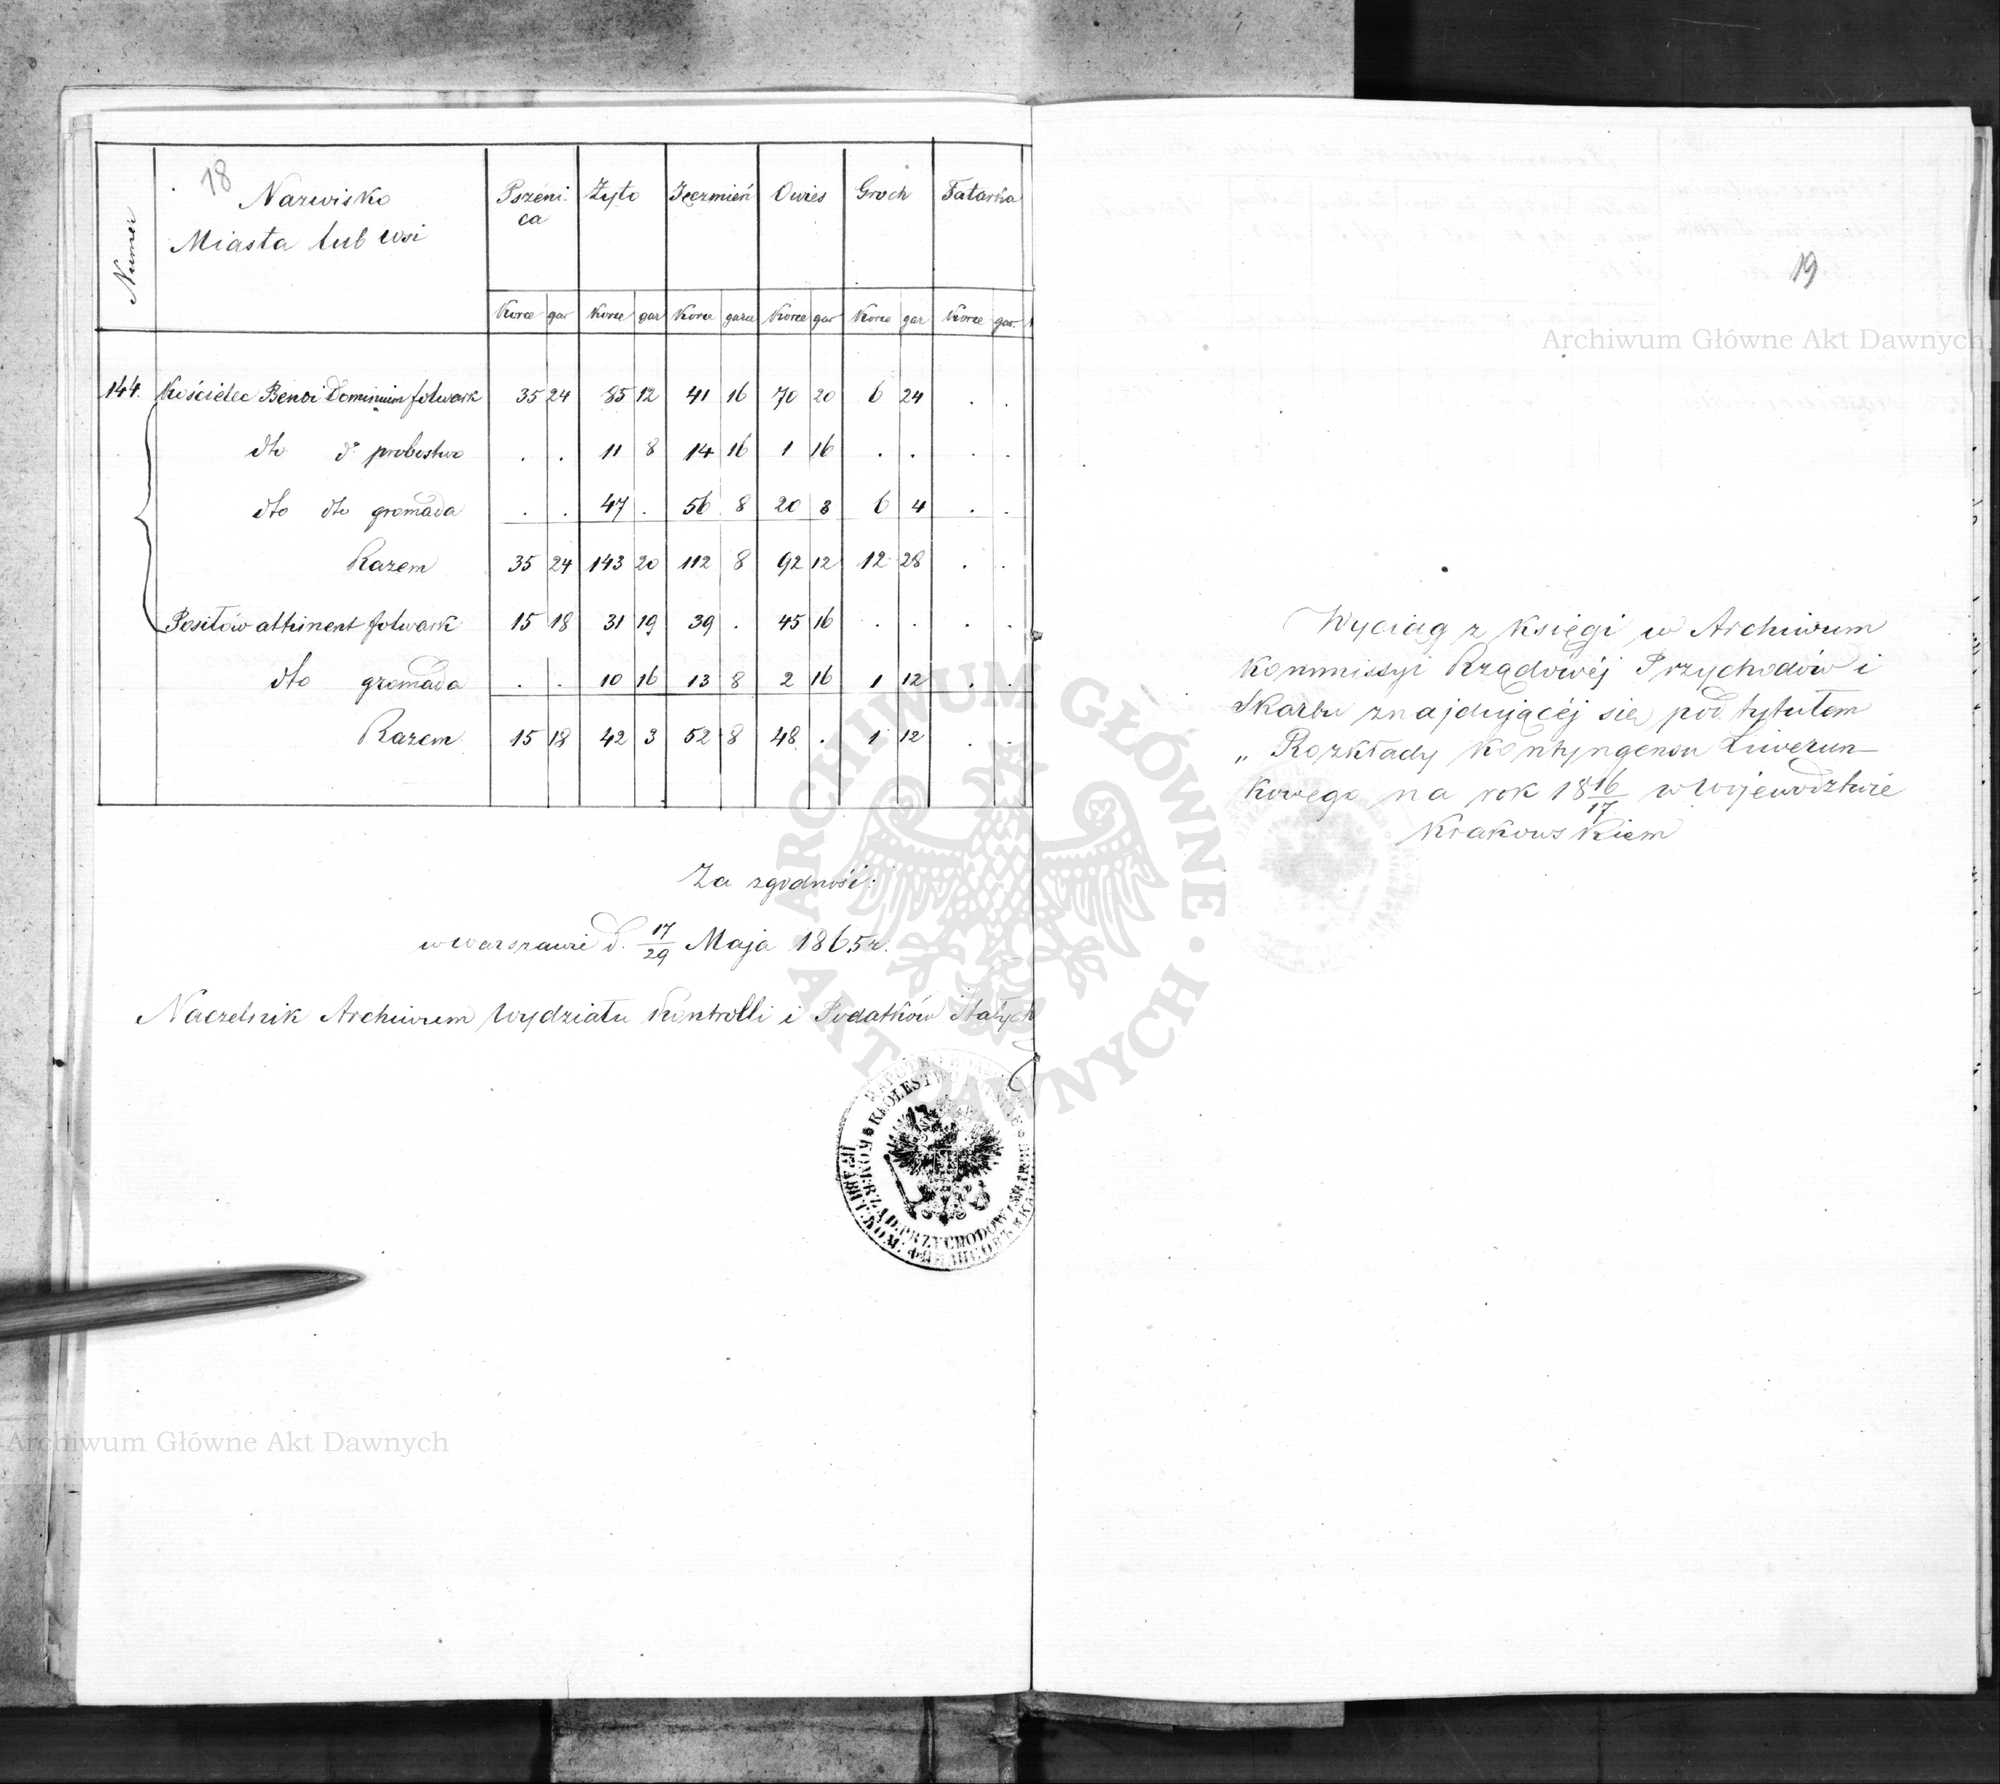 18
Numer
Nazwisko
Miasta lub wsi
Pszeni-
ca
Żyto Jęczmień Owies Groch Tatarka
Korce gar Korce gar Korce garce Korce gar Korce gar Korce gar.
144. Kościelec Benoi Dominium folwark 35 24 85 12 41 16 70 20 6 24 . .
dto do probostwo . . 11 8 14 16 1 16 . . . .
dto dto gromada . . 47 . 56 8 20 8 6 4 . .
Razem 35 24 143 20 112 8 92 12 12 28 . .
Posiłów attinent folwark 15 18 31 19 39 . 45 16 . . . .
dto gromada . . 10 16 13 8 2 16 1 12 . .
Razem 15 18 42 3 52 8 48 . 1 12 . .
Za zgodność:
w Warszawie d. 17/29 Maja 1865 r.
Naczelnik Archiwum Wydziału Kontrolli i Podatków Stałych
KRÓLESTWO
RZĄD. PRZYCHODOW I SKARBU
19
Wyciąg z księgi w Archiwum
Kommissyi Rządowéj Przychodów i
Skarbu znajdującéj się pod tytułem
„ Rozkłady Kontyngensu Liwerun-
kowego na rok 1816/17 w Województwie
Krakowskiem
Archiwum Główne Akt Dawnych
ARCHIWUM GŁÓWNE AKT DAWNYCH
Archiwum Główne Akt Dawnych